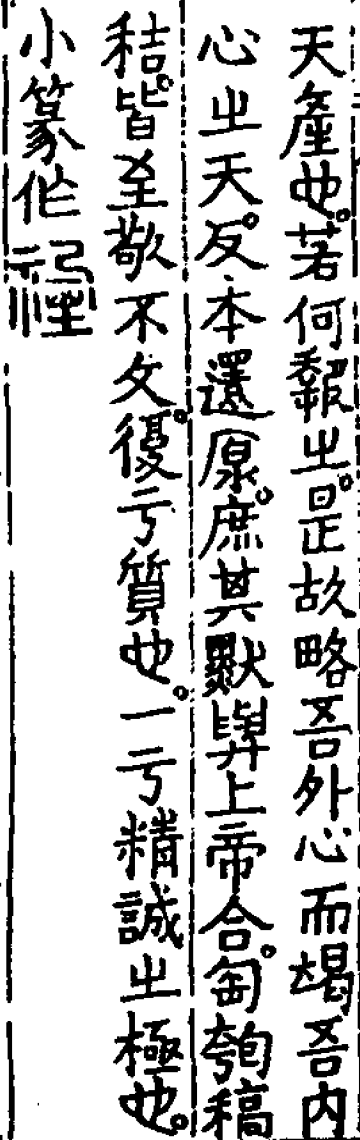 天產也。若何報㞢。是故略吾外心而竭吾內
心㞢天。反本還原。庶其默與上帝合。匋匏稿
秸。皆至敬不文。優亏質也。一亏精誠㞢極也。
小篆作禋